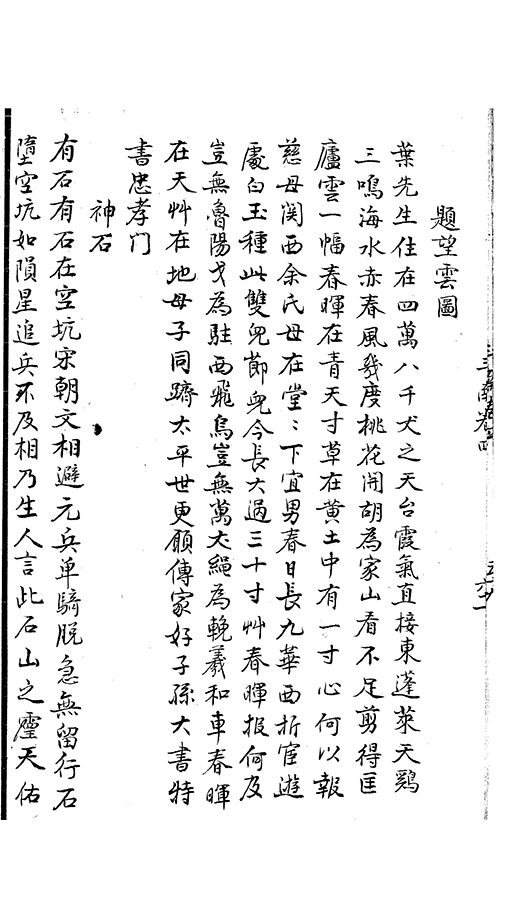 題望雲圖
葉先生住在四萬八千丈之天台霞氣直接東蓬萊天鷄
三鳴海水赤春風幾度桃花開胡為家山看不足剪得匡
廬雲一幅春暉在青天寸草在黃土中有一寸心何以報
慈母関西余氏母在堂〻下宜男春日長九華西折宦遊
處白玉種此雙兒節兒今長大過三十寸艸春暉报何及
豈無魯陽戈為駐西飛烏豈無萬丈繩為輓羲和車春暉
在天艸在地母子同躋太平世更願傳家好子孫大書特
書忠孝门
神石
有石有石在空坑宋朝文相避元兵单騎脱急無留行石
墮空坑如隕星追兵不及相乃生人言此石山之靈天佑